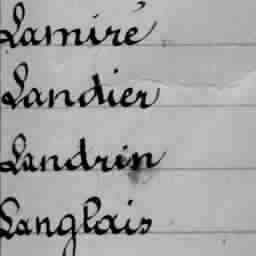 Lamiré
Landier
Landrin
Langlais